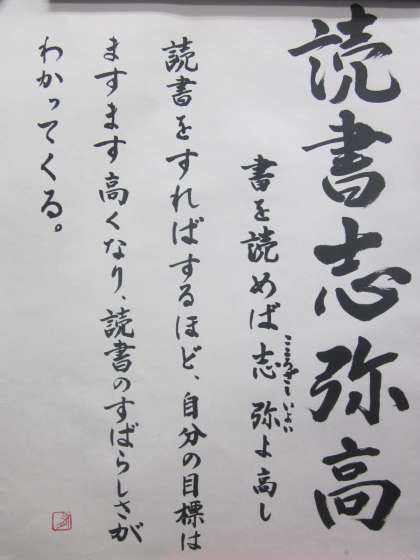 読書志弥高
書を読めば志弥よ高し
こころざし いよい
読書をすればするほど、自分の目標は
ますます高くなり、読書のすばらしさが
わかってくる。